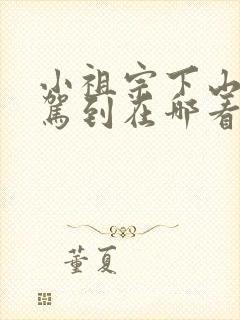 小祖宗下山
驾到在哪看
董夏